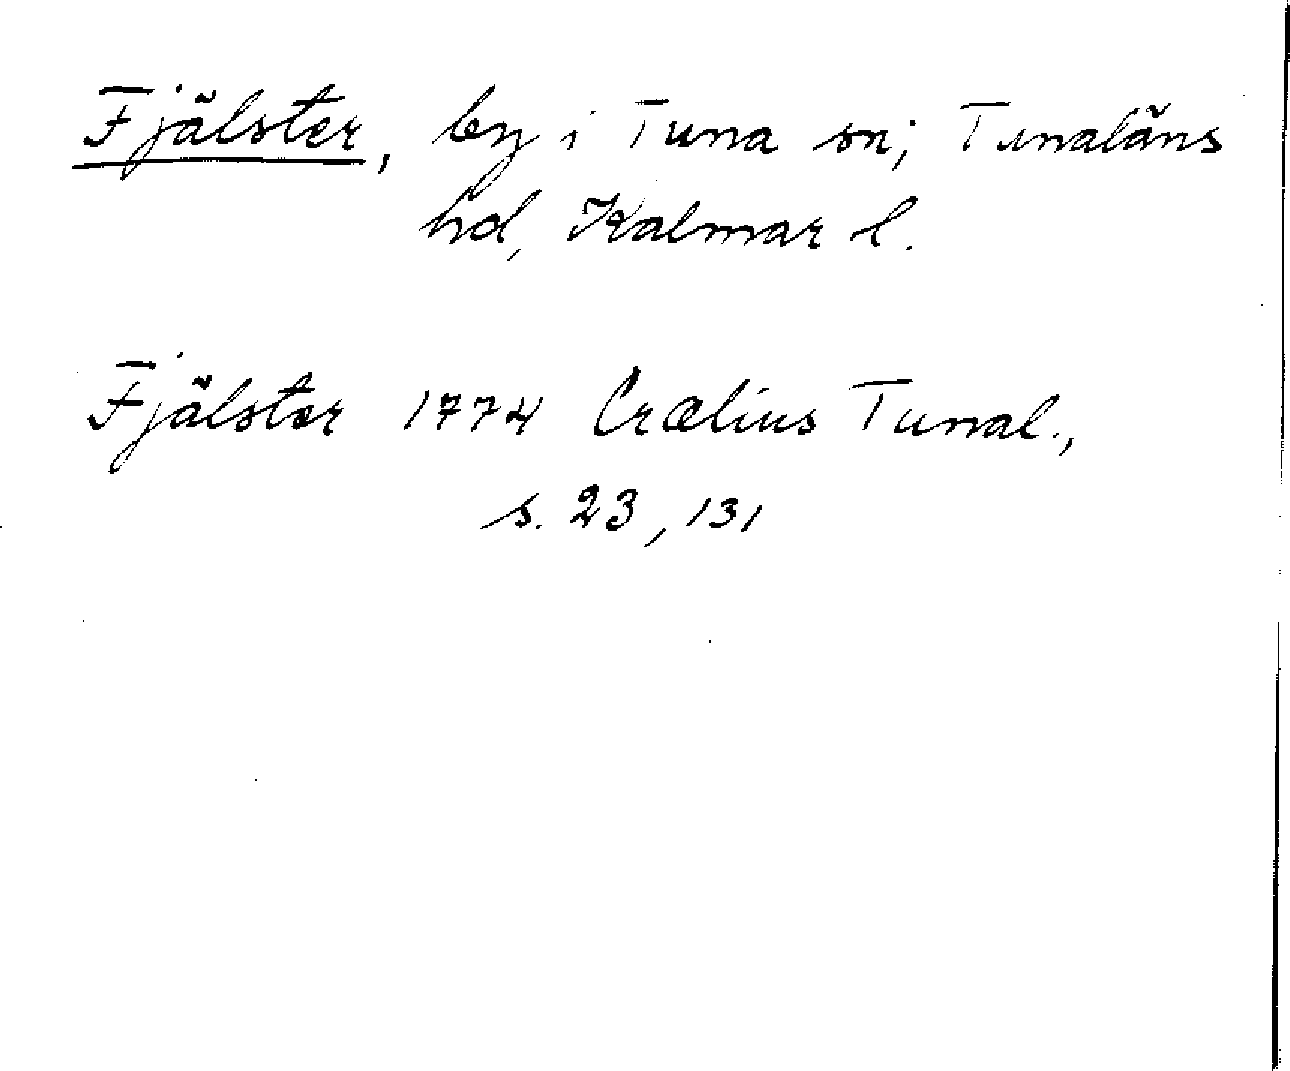 Fjälster, by i Tuna sn; Tunaläns
hd, Kalmar l.
Fjälster 1774 Crælius Tunal.,
s. 23, 131